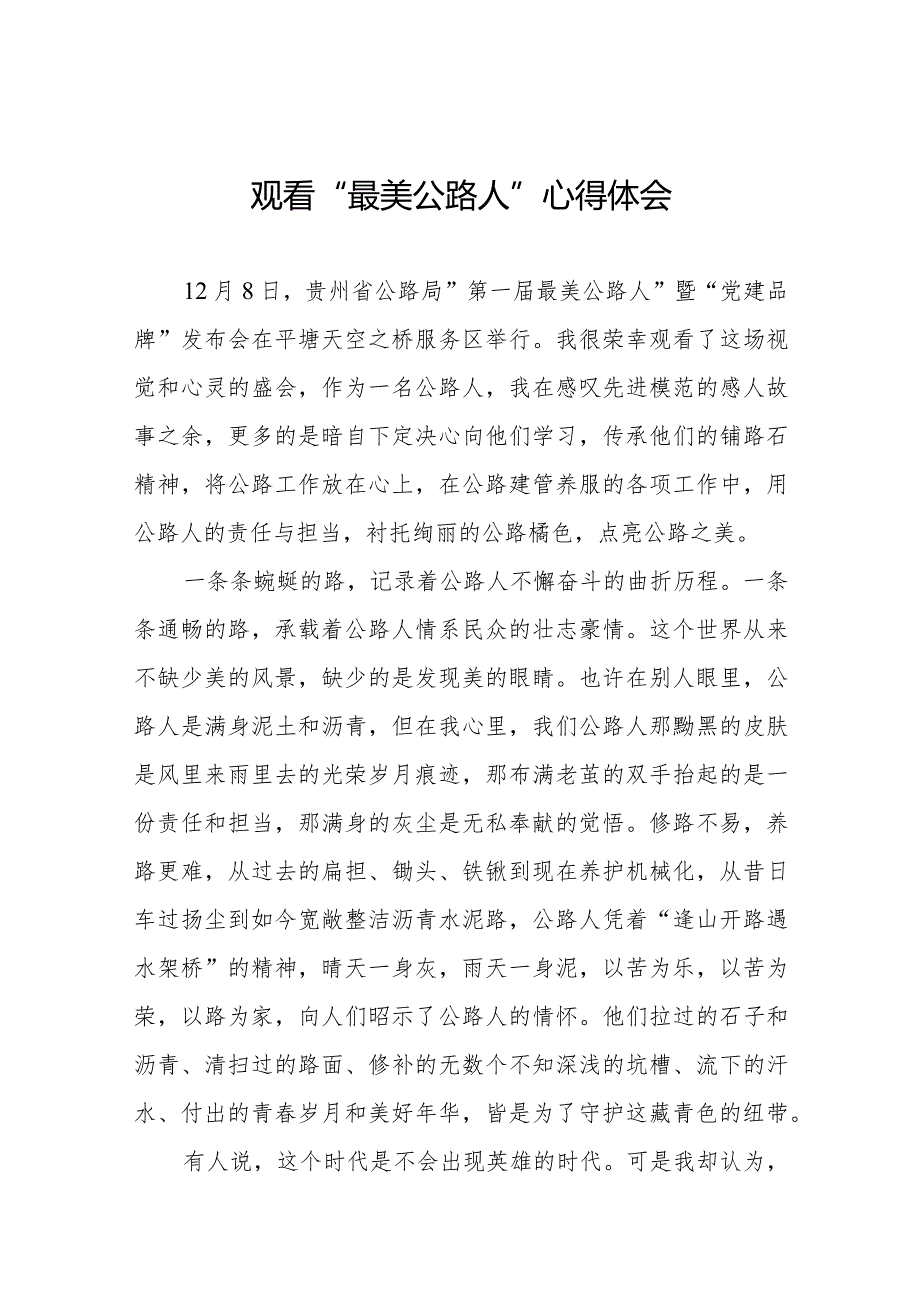 观看“最美公路人”心得体会
12月8日，贵州省公路局”第一届最美公路人”暨“党建品
牌”发布会在平塘天空之桥服务区举行。我很荣幸观看了这场视
觉和心灵的盛会，作为一名公路人，我在感叹先进模范的感人故
事之余，更多的是暗自下定决心向他们学习，传承他们的铺路石
精神，将公路工作放在心上，在公路建管养服的各项工作中，用
公路人的责任与担当，衬托绚丽的公路橘色，点亮公路之美。
一条条蜿蜒的路，记录着公路人不懈奋斗的曲折历程。一条
条通畅的路，承载着公路人情系民众的壮志豪情。这个世界从来
不缺少美的风景，缺少的是发现美的眼睛。也许在别人眼里，公
路人是满身泥土和沥青，但在我心里，我们公路人那黝黑的皮肤
是风里来雨里去的光荣岁月痕迹，那布满老茧的双手抬起的是一
份责任和担当，那满身的灰尘是无私奉献的觉悟。修路不易，养
路更难，从过去的扁担、锄头、铁锹到现在养护机械化，从昔日
车过扬尘到如今宽敞整洁沥青水泥路，公路人凭着“逢山开路遇
水架桥”的精神，晴天一身灰，雨天一身泥，以苦为乐，以苦为
荣，以路为家，向人们昭示了公路人的情怀。他们拉过的石子和
沥青、清扫过的路面、修补的无数个不知深浅的坑槽、流下的汗
水、付出的青春岁月和美好年华，皆是为了守护这藏青色的纽带。
有人说，这个时代是不会出现英雄的时代。可是我却认为，